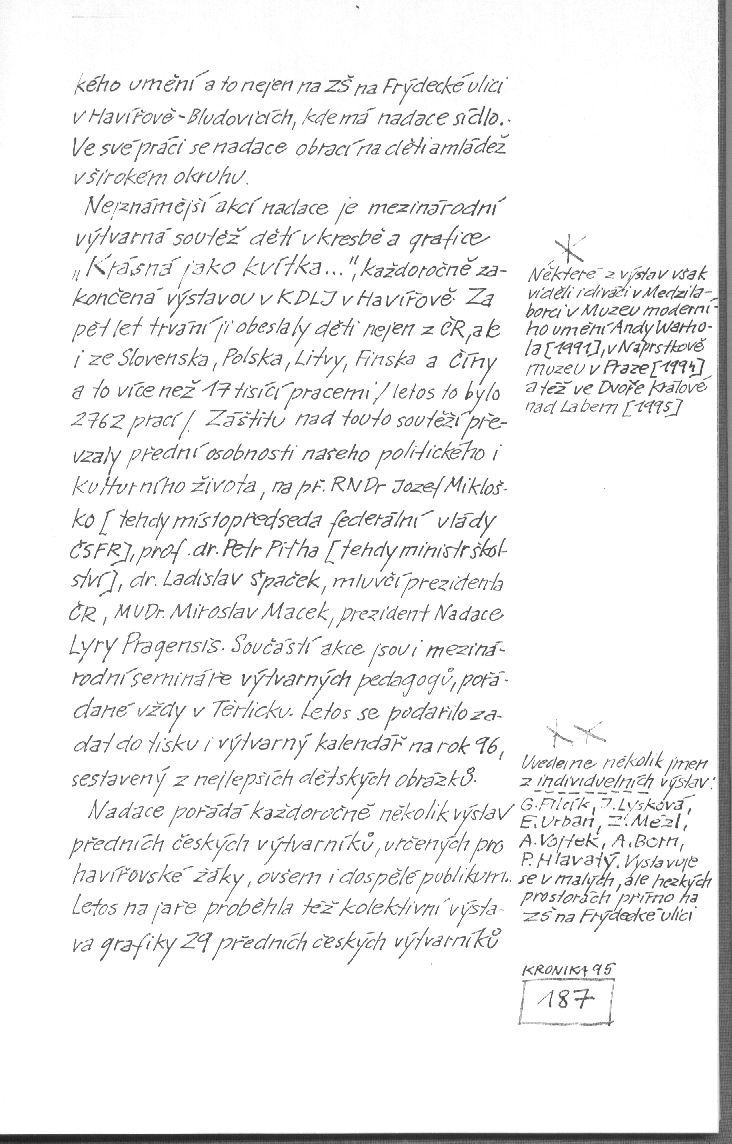 kého umění a to nejen na ZŠ na Frýdecké ulici
v Havířově-Bludovicích, kde má nadace sídlo.
Ve své práci se nadace obrací na děti a mládež
v širokém okruhu.
Nejznámější akcí nadace je mezinárodní
výtvarná soutěž dětí v kresbě a grafice
„Krásná jako kvítka...", každoročně za-
končená výstavou v KDLJ v Havířově. Za
pět let trvání ji obeslaly děti nejen z ČR, ale
i ze Slovenska, Polska, Litvy, Finska a Číny
a to více než 17 tisící pracemi / letos to bylo
2762 prací /. Záštitu nad touto soutěží pře-
vzaly přední osobnosti našeho politického i
kulturního života, na př. RNDr Jozef Mikloš-
ko [ tehdy místopředseda federální vlády
ČSFR], prof. dr. Petr Piťha [ tehdy ministr škol-
ství], dr. Ladislav Špaček, mluvčí prezidenta
ČR, MUDr. Miroslav Macek, prezident Nadace
Lyry Pragensis. Součástí akce jsou i meziná-
rodní semináře výtvarných pedagogů, pořá-
dané vždy v Těrlicku. Letos se podařilo za-
dat do tisku i výtvarný kalendář na rok 96,
sestavený z nejlepších dětských obrázků.
Nadace pořádá každoročně několik výstav
předních českých výtvarníků, určených pro
havířovské žáky, ovšem i dospělé publikum.
Letos na jaře proběhla též kolektivní výsta-
va grafiky 29 předních českých výtvarníků
*
Některé z výstav však
viděli i diváci v Medzila-
borci v Muzeu moderní-
ho umění Andy Warho-
la [1991], v Náprstkově
muzeu v Praze [1994]
a též ve Dvoře Králové
nad Labem [1995]
**
Uveďme několik jmen
z individuelních výstav:
G. Filcík, J. Lysková,
E. Urban, Z. Mézl,
A. Vojtek, A. Born,
P. Hlavatý. Vystavuje
se v malých, ale hezkých
prostorách přímo na
ZŠ na Frýdecké ulici
KRONIKA 95
187